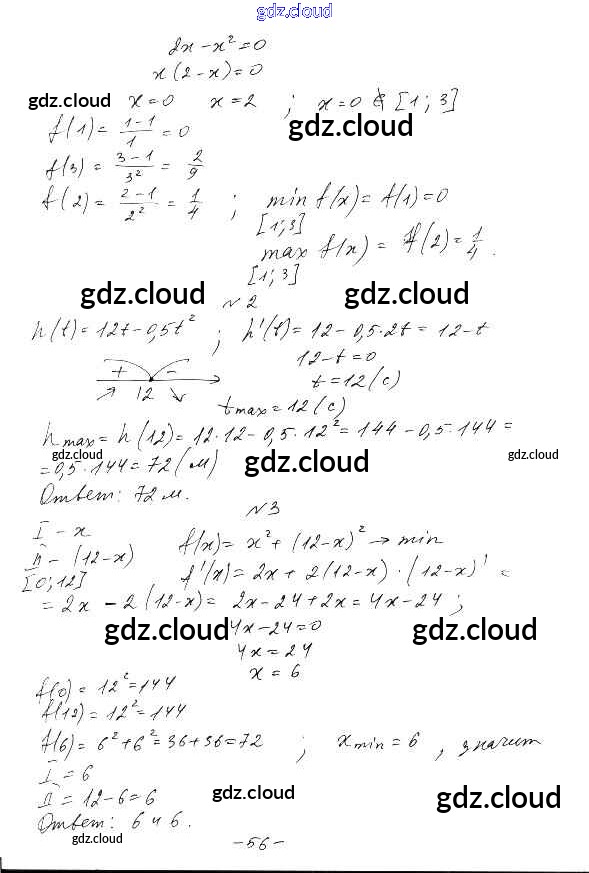 gdz.cloud
2x - x² = 0
x(2 - x) = 0
gdz.cloud x = 0 x = 2 ; x = 0 ∉ [1; 3]
f(1) = (1-1)/1 = 0 gdz.cloud
f(3) = (3-1)/3² = 2/9
f(2) = (2-1)/2² = 1/4 ; min f(x) = f(1) = 0
[1; 3]
max f(x) = f(2) = 1/4.
[1; 3]
gdz.cloud gdz.cloud
№2
h(t) = 12t - 0,5t² ; h'(t) = 12 - 0,5·2t = 12 - t
12 - t = 0
+ -
t = 12 (с)
12
tmax = 12 (с)
hmax = h(12) = 12·12 - 0,5·12² = 144 - 0,5·144 =
= 0,5·144 = 72 (м)
gdz.cloud gdz.cloud gdz.cloud
Ответ: 72 м.
№3
I - x
f(x) = x² + (12 - x)² → min
II - (12 - x)
[0; 12]
f'(x) = 2x + 2(12 - x)·(12 - x)' =
= 2x - 2(12 - x) = 2x - 24 + 2x = 4x - 24 ;
gdz.cloud 4x - 24 = 0 gdz.cloud
4x = 24
x = 6
f(0) = 12² = 144
f(12) = 12² = 144
f(6) = 6² + 6² = 36 + 36 = 72 ; xmin = 6 , значит
I = 6
II = 12 - 6 = 6 gdz.cloud gdz.cloud
Ответ: 6 и 6.
gdz.cloud
- 56 -